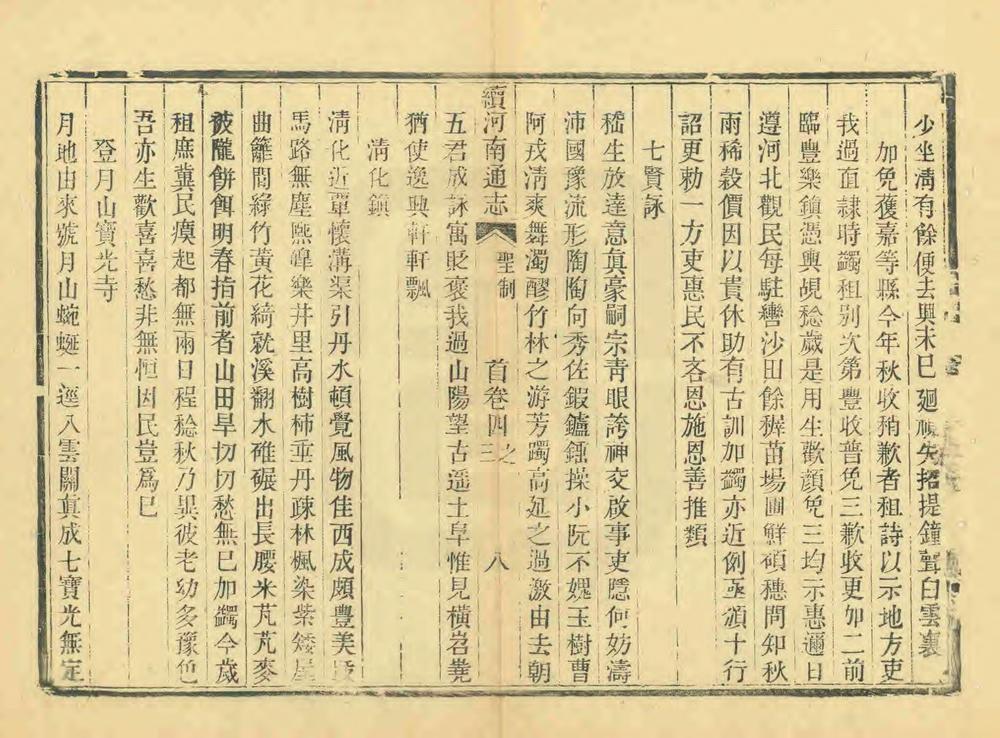 少坐淸有餘便去興未已廻頭失招提鐘聲白雲裏
加免獲嘉等縣今年秋收稍歉者租詩以示地方吏
我過面隷時蠲租别次第豐收普免三歉收更加二前
臨豐樂鎮憑輿覘稔歲是用生歡顔免三均示惠邇日
遵河北觀民每駐轡沙田餘穉苗場圃鮮碩穗問知秋
雨稀穀價因以貴休助有古訓加蠲亦近例亟頒十行
詔更勅一方吏惠民不吝恩施恩善推類
七賢詠
嵇生放達意真豪嗣宗靑眼誇神交啟事吏隱何妨濤
沛國豫流形陶陶向秀佐鍜鑪錘操小阮不媿玉樹曹
阿戎淸爽舞濁醪竹林之游芳躅高延之過激由去朝
續河南通志 聖制 首卷四之三 八
五君成詠寓貶褒我過山陽望古遥土阜惟見橫岧嶤
猶使逸興軒軒飄
淸化鎮
淸化近覃懷溝渠引丹水頓覺風物佳西成頗豐美
馬路無塵熙皡樂井里高樹柿垂丹疎林楓染紫矮屋
曲籬間綠竹黃花綺就溪翻水碓碾出長腰米芃芃麥
被隴餅餌明春指前者山田旱切切愁無已加蠲今歲
租庶冀民瘼起都無兩日程稔秋乃異彼老幼多豫色
吾亦生歡喜喜愁非無恒因民豈爲已
登月山寶光寺
月地由來號月山蜿蜒一逕入雲關真成七寶光無定